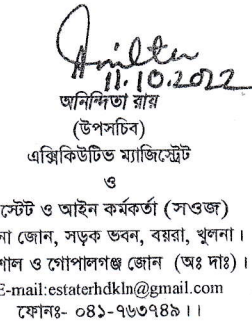 11.10.2022
অনিন্দিতা রায়
(উপসচিব)
এক্সিকিউটিভ ম্যাজিস্ট্রেট
ও
স্টেট ও আইন কর্মকর্তা (সওজ)
না জোন, সড়ক ভবন, বয়রা, খুলনা।
শাল ও গোপালগঞ্জ জোন (অঃ দাঃ)।
E-mail:estaterhdkln@gmail.com
ফোনঃ- ০৪১-৭৬৩৭৪৯।।